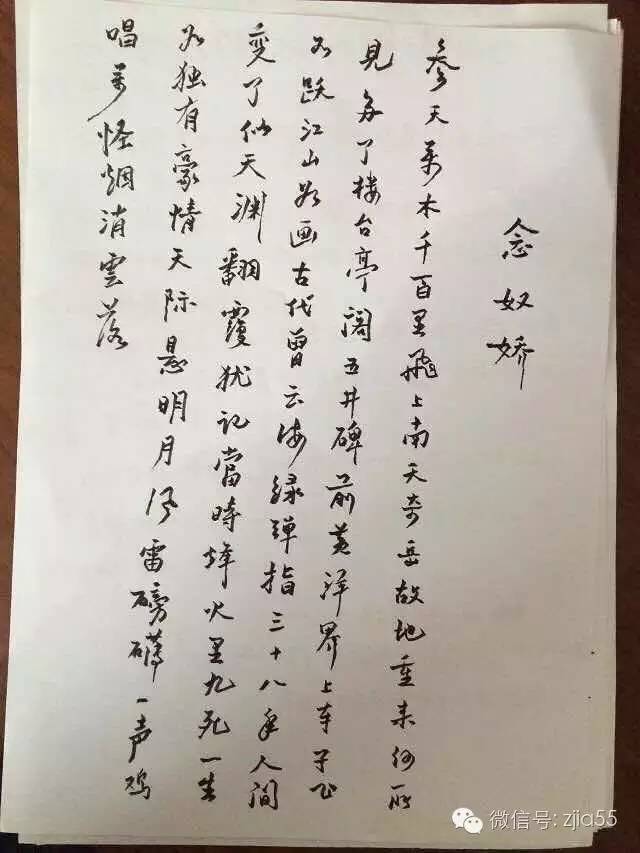 念奴娇
参天万木千百里飛上南天奇岳故地重来何所
見多了楼台亭阁五井碑前黄洋界上车子飞
如跃江山如画古代曾云海绿弹指三十八年人间
变了似天渊翻覆犹记當時烽火里九死一生
如独有豪情天际悬明月风雷磅礴一声鸡
唱万怪烟消雲落
微信号: zjia55